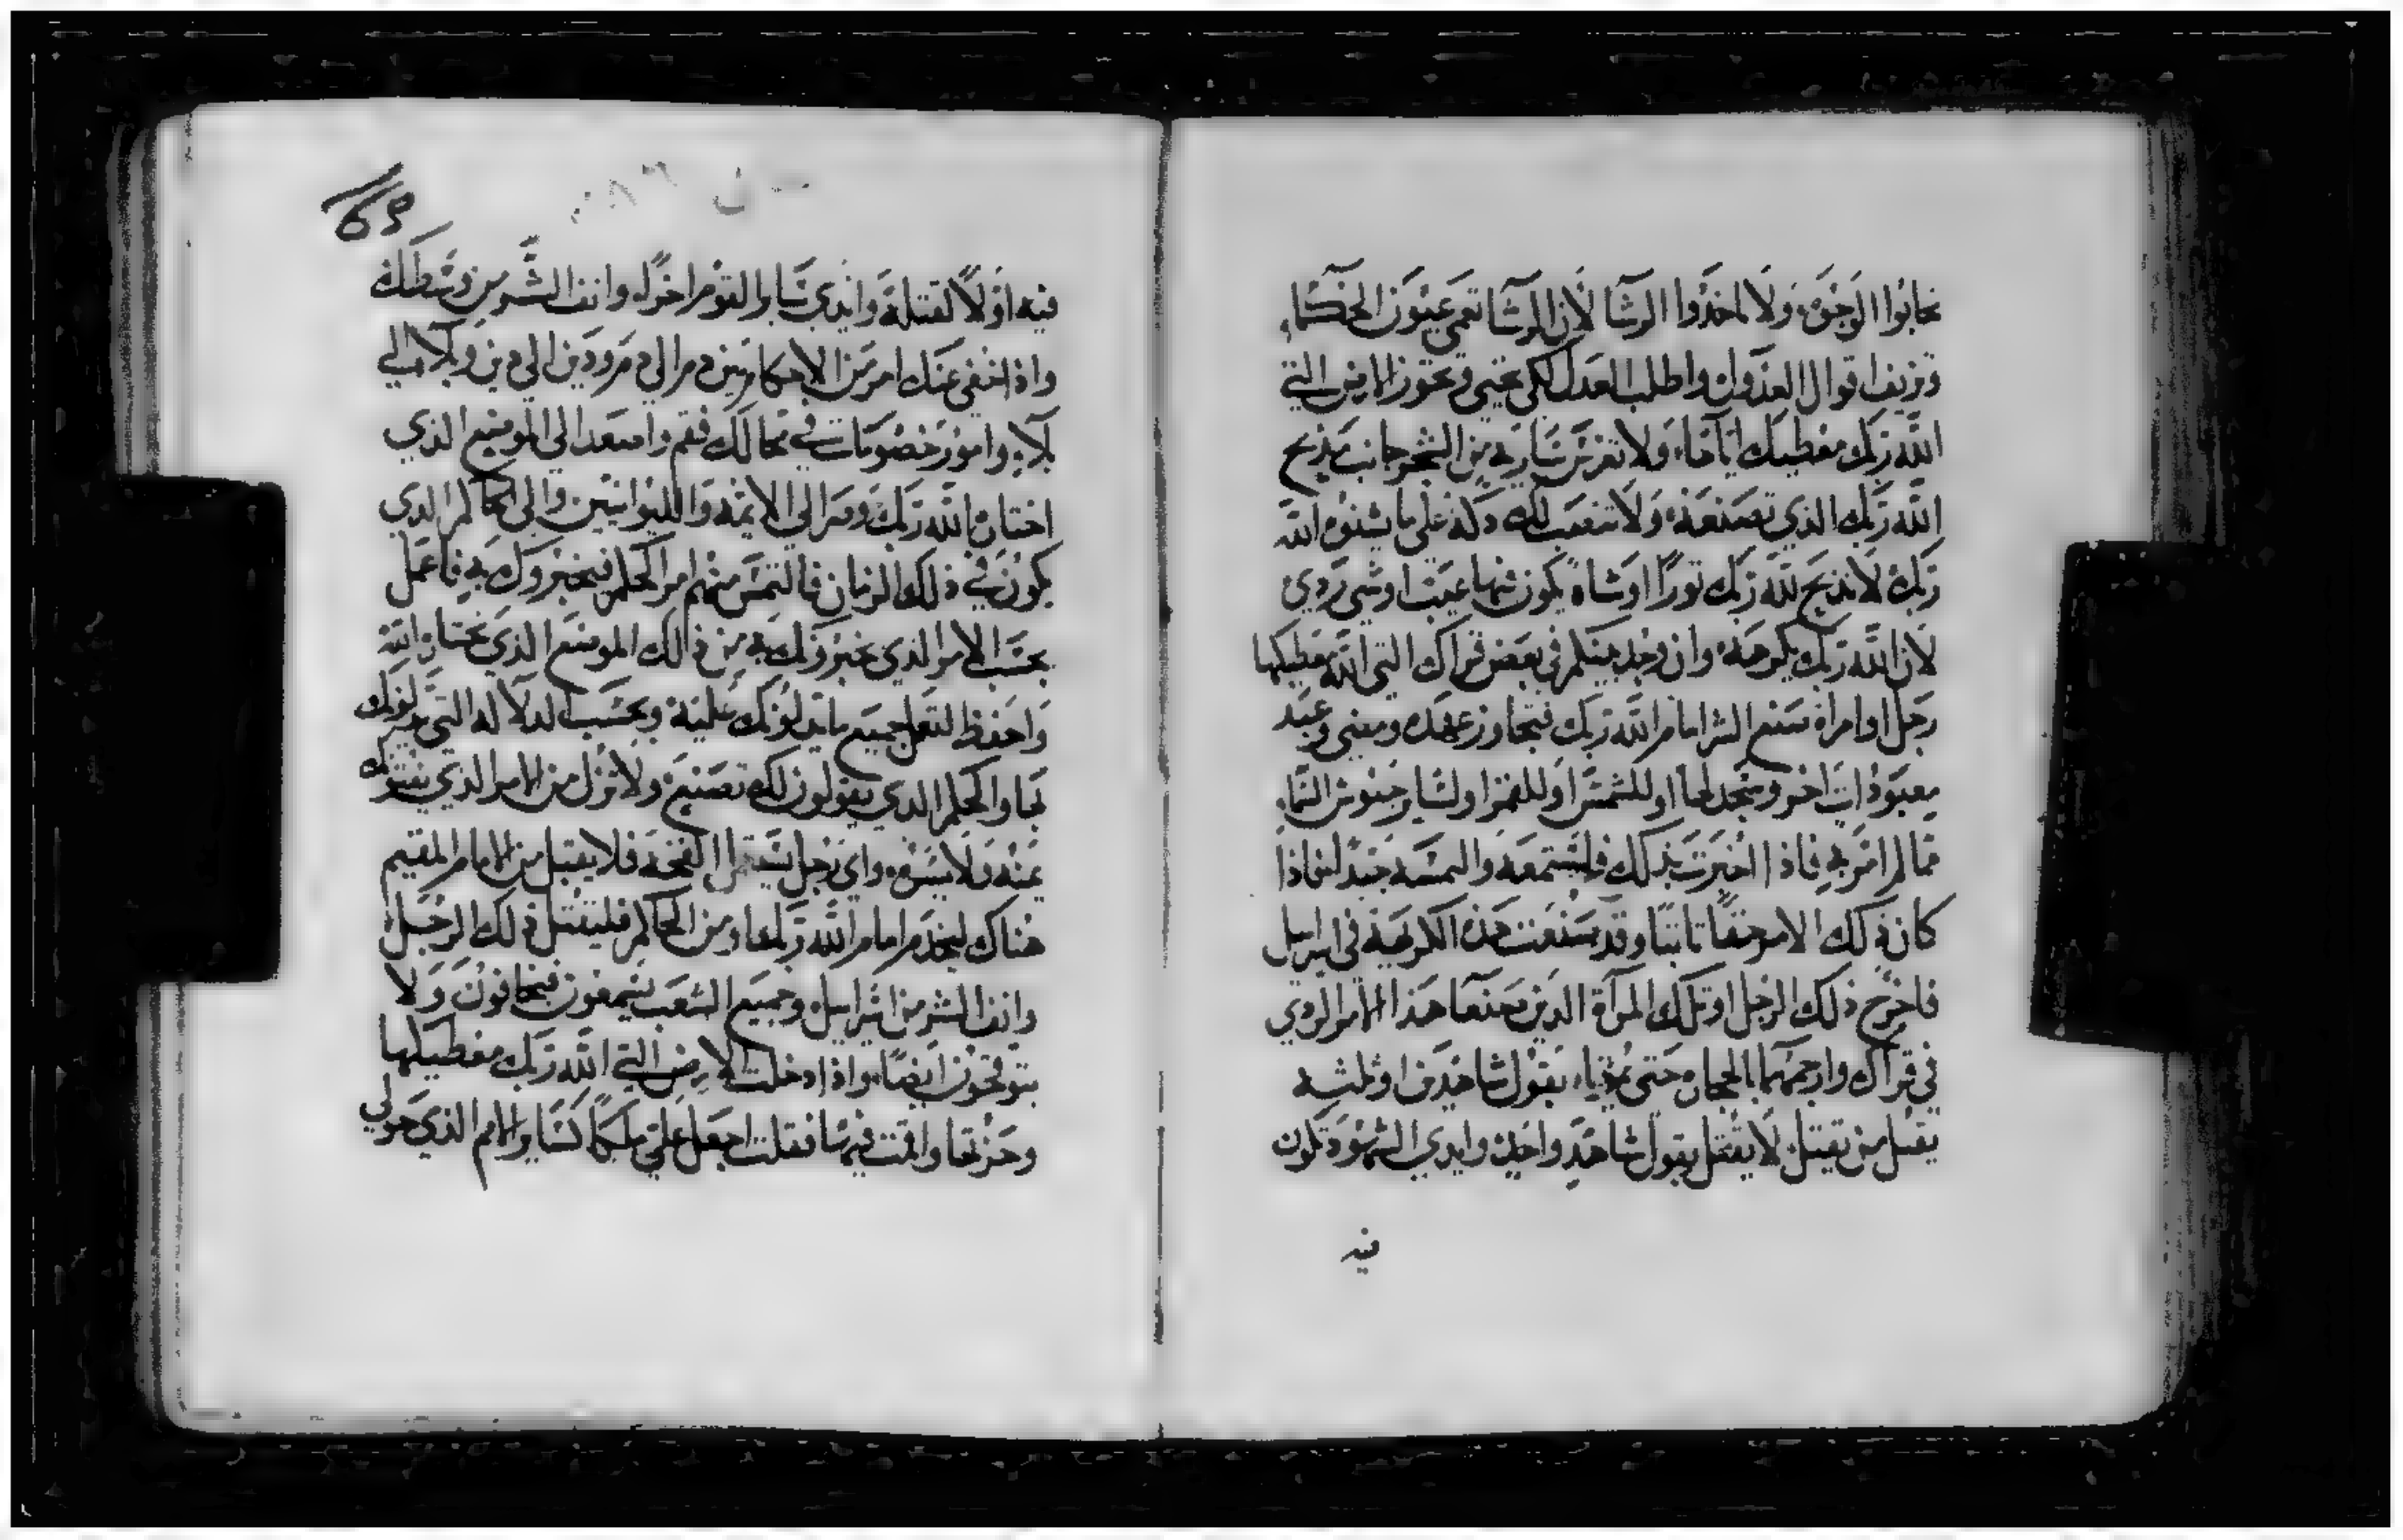 تحابوا الوجوه ولا تاخذوا الرشا لان الرشا تعمي عيون الحكماء
وتزيف اقوال العدول واطلب العدل لكي تحيى وتحوز الارض التي
الله ربك معطيك اياها ولا تغرس سارية من الشجر جانب مذبح
الله ربك الذي تصنعه ولا تنصب لك دكة على ما يشنوه الله
ربك لا تذبح لله ربك ثورا او شاة يكون فيها عيب او شي ردي
لان الله ربك يكرهه وان وجد بينكم في بعض قراك التي الله معطيكها
رجل او امراة صنع الشر امام الله ربك فتجاوز عهده ومضى وعبد
معبودات اخر وسجد لها او للشمس او للقمر او لساير جيوش السماء
مما لم امر به فاذا اخبرت بذلك فلتستمعه والتمسه جيدا فاذا
كان ذلك الامر حقا ثابتا وقد صنعت هذه الكريهة في اسراييل
فاخرج ذلك الرجل او تلك المرآة الذين صنعا هذا الامر الردي
في قراك وارجمهما بالحجارة حتى يموتا، بقول شاهدين او ثلثه
يقتل من يقتل لا يقتل بقول شاهد واحد وايدي الشهود تكون
فيه
69
فيه اولا لقتله وايدي ساير القوم اخرا وانف الشر من وسطك
واذا خفي عنك امر من الاحكام بين دم الى دم وبين دين الى دين وبلاء الي
بلاء وامور خصومات في محالك فقم واصعد الى الموضع الذي
اختاره الله ربك وصر الي الايمة والليوانيين والى الحاكم الذي
يكون في ذلك الزمان فالتمس منهم امر الحكم فيخبروك به فاعمل
بحسب الامر الذي يخبرونك به من ذالك الموضع الذي يختاره الله
واحفظ لتعمل جميع ما يدلونك عليه وبحسب الدلاله التي يدلونك
بها والحكم الذي يقولون لك تصنع ولا تزل من الامر الذي يفتوك
يمنه ولا يسره واي رجل يستعمل القحة فلا يقبل من الامام المقيم
هناك ليخدم امام الله ربك او من الحاكم فليقتل ذلك الرجل
وانف الشر من اسراييل وجميع الشعب يسمعون فيخافون ولا
يتوقحون ايضا واذا دخلت الارض التي الله ربك معطيكها
وحزتها واقمت فيها فقلت اجعل علي ملكا كساير الامم الذي حولي